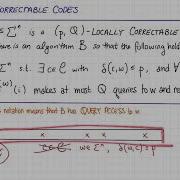 CORRECTABLE CODES
⊆ Σⁿ is a (p, Q)-LOCALLY CORRECTABLE
there is an algorithm B so that the following hold
Σⁿ s.t. ∃ c∈C with δ(c,w) ≤ p, and ∀
(i) makes at most Q queries to w and re
notation means that B has QUERY ACCESS to w
x x x x
w∈Σⁿ, δ(w,c)≤p